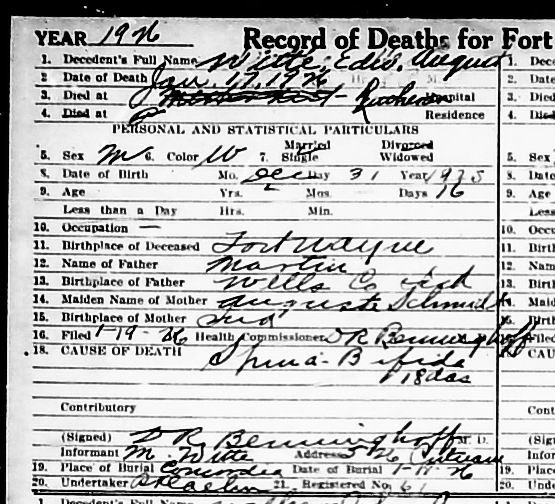 YEAR 1926 Record of Deaths for Fort
1. Decedent's Full Name Witte, Edw. August
2. Date of Death Jan. 17, 1926 H M
3. Died at Hospital
4. Died at Residence
PERSONAL AND STATISTICAL PARTICULARS
5. Sex M 6. Color W 7. Married Single Divorced Widowed
8. Date of Birth Mo. Dec Day 31 Year 1925
9. Age Yrs. Mos. Days 16
Less than a Day Hrs. Min.
10. Occupation —
11. Birthplace of Deceased Fort Wayne
12. Name of Father Martin
13. Birthplace of Father Wells Co Ind
14. Maiden Name of Mother Auguste Schmidt
15. Birthplace of Mother Ind
16. Filed 1-19-26 Health Commissioner D R Benninghoff
18. CAUSE OF DEATH Spina-Bifida
18 das
Contributory
(Signed) D R. Benninghoff M. D.
Informant M. Witte Address
19. Place of Burial Concordia Date of Burial
20. Undertaker 21. Registered No. 61
1. Dece
2. Date
3. Died
4. Died
5. Sex
8. Date
9. Age
Less
10. Occu
11. Birth
12. Nam
13. Birth
14. Maid
15. Birth
16. Filed
18. CAU
Cont
(Sign
Infor
19. Place
20. Unde